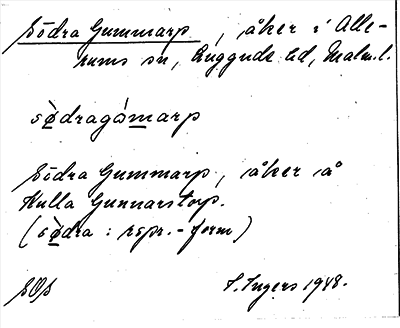 Södra Gummarp, åker i Alle-
rums sn, Luggude hd, Malm.l.
sødragómarp
Södra Gummarp, åker å
Kulla Gunnarstorp.
(sødra : rspr.-form)
I. Ingers 1948.